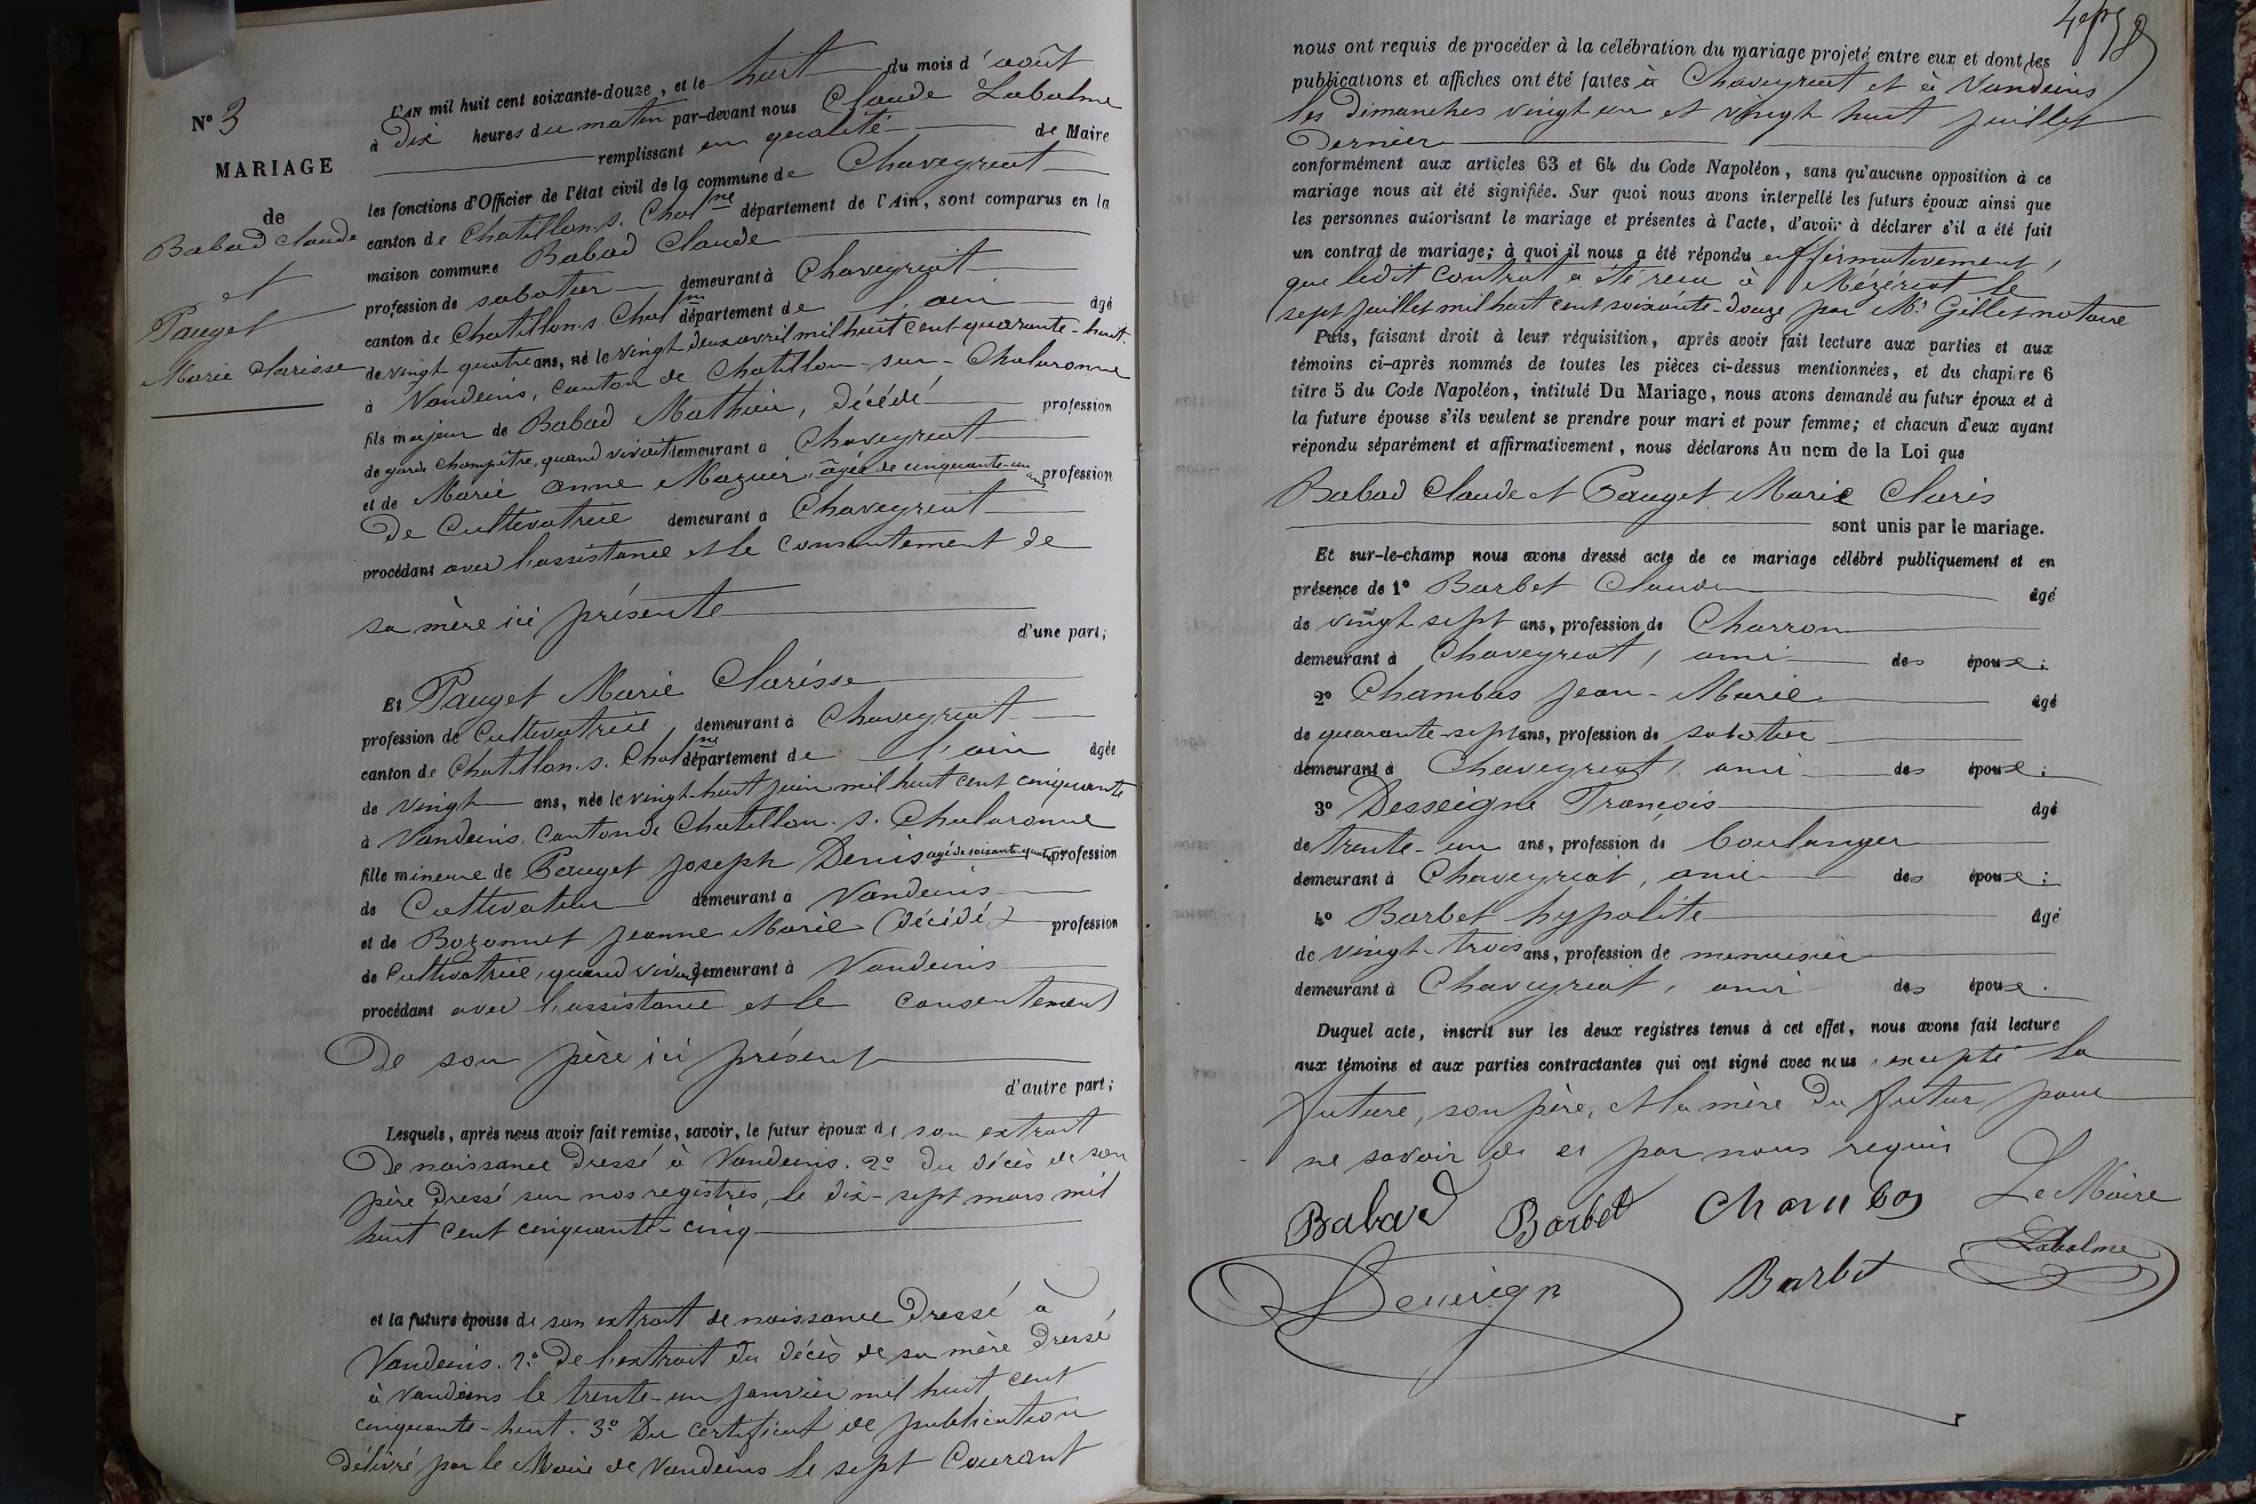 N° 3
MARIAGE
de
Babad Claude
et
Pauget
Marie Clarisse
L'AN mil huit cent soixante-douze, et le huit du mois d'août
à Dix heures du matin par-devant nous Claude Labalme
remplissant en qualité de Maire
les fonctions d'Officier de l'état civil de la commune de Chaveyriat
canton de Chatillon s. Chal ne département de l'Ain, sont comparus en la
maison commune Babad Claude
profession de sabotier demeurant à Chaveyriat
canton de Chatillon s. Chal ne département de l'ain âgé
de vingt quatre ans, né le vingt deux avril mil huit cent quarante-huit
à Vandeins, canton de Chatillon-sur-Chalaronne
fils majeur de Babad Mathieu, décédé profession
de garde champêtre, quand vivait demeurant à Chaveyriat
et de Marie Anne Mazuir, âgée de cinquante-un ans profession
De Cultivatrice demeurant à Chaveyriat
procédant avec l'assistance et le consentement de
sa mère ici présente
d'une part;
Et Pauget Marie Clarisse
profession de Cultivatrice demeurant à Chaveyriat
canton de Chatillon s. Chal ne département de l'ain âgée
de vingt ans, née le vingt-huit juin mil huit cent cinquante
à Vandeins, canton de Chatillon. s. Chalaronne
fille mineure de Pauget Joseph Denis agé de soixante quatre profession
de Cultivateur demeurant à Vandeins
et de Bozonnet Jeanne Marie (décédé) profession
de Cultivatrice, quand vivait demeurant à Vandeins
procédant avec l'assistance et le consentement
De son père ici présent
d'autre part;
Lesquels, après nous avoir fait remise, savoir, le futur époux de son extrait
De naissance dressé à Vandeins. 2° du décès de son
père dressé sur nos registres, le dix-sept mars mil
huit cent cinquante-cinq
et la future épouse de son extrait de naissance dressé à
Vandeins. 2° De l'extrait du décès de sa mère dressé
à Vandeins le trente-un janvier mil huit cent
cinquante-huit. 3° Du certificat de publication
délivré par le Maire de Vandeins le sept Courant
nous ont requis de procéder à la célébration du mariage projeté entre eux et dont les
publications et affiches ont été faites à Chaveyriat et à Vandeins
les Dimanches vingt un et vingt huit juillet
Dernier
conformément aux articles 63 et 64 du Code Napoléon, sans qu'aucune opposition à ce
mariage nous ait été signifiée. Sur quoi nous avons interpellé les futurs époux ainsi que
les personnes autorisant le mariage et présentes à l'acte, d'avoir à déclarer s'il a été fait
un contrat de mariage; à quoi il nous a été répondu affirmativement,
que ledit contrat a été reçu à Mézériat le
sept juillet mil huit cent soixante-douze par Me Gillet notaire
Puis, faisant droit à leur réquisition, après avoir fait lecture aux parties et aux
témoins ci-après nommés de toutes les pièces ci-dessus mentionnées, et du chapitre 6
titre 5 du Code Napoléon, intitulé Du Mariage, nous avons demandé au futur époux et à
la future épouse s'ils veulent se prendre pour mari et pour femme; et chacun d'eux ayant
répondu séparément et affirmativement, nous déclarons Au nom de la Loi que
Babad Claude et Pauget Marie Claris
sont unis par le mariage.
Et sur-le-champ nous avons dressé acte de ce mariage célébré publiquement et en
présence de 1° Barbet Claude âgé
de vingt sept ans, profession de Charron
demeurant à Chaveyriat, ami des époux:
2° Chambas Jean-Marie âgé
de quarante-sept ans, profession de sabotier
demeurant à Chaveyriat, ami des époux:
3° Desseigne François âgé
de trente-un ans, profession de boulanger
demeurant à Chaveyriat, ami des époux:
4° Barbet hypolite âgé
de vingt-trois ans, profession de menuisier
demeurant à Chaveyriat, ami des époux.
Duquel acte, inscrit sur les deux registres tenus à cet effet, nous avons fait lecture
aux témoins et aux parties contractantes qui ont signé avec nous excepté la
future, son père, et la mère du futur pour
ne savoir de ce par nous requis
Babad Barbet Chambas Le Maire
Labalme
Barbet